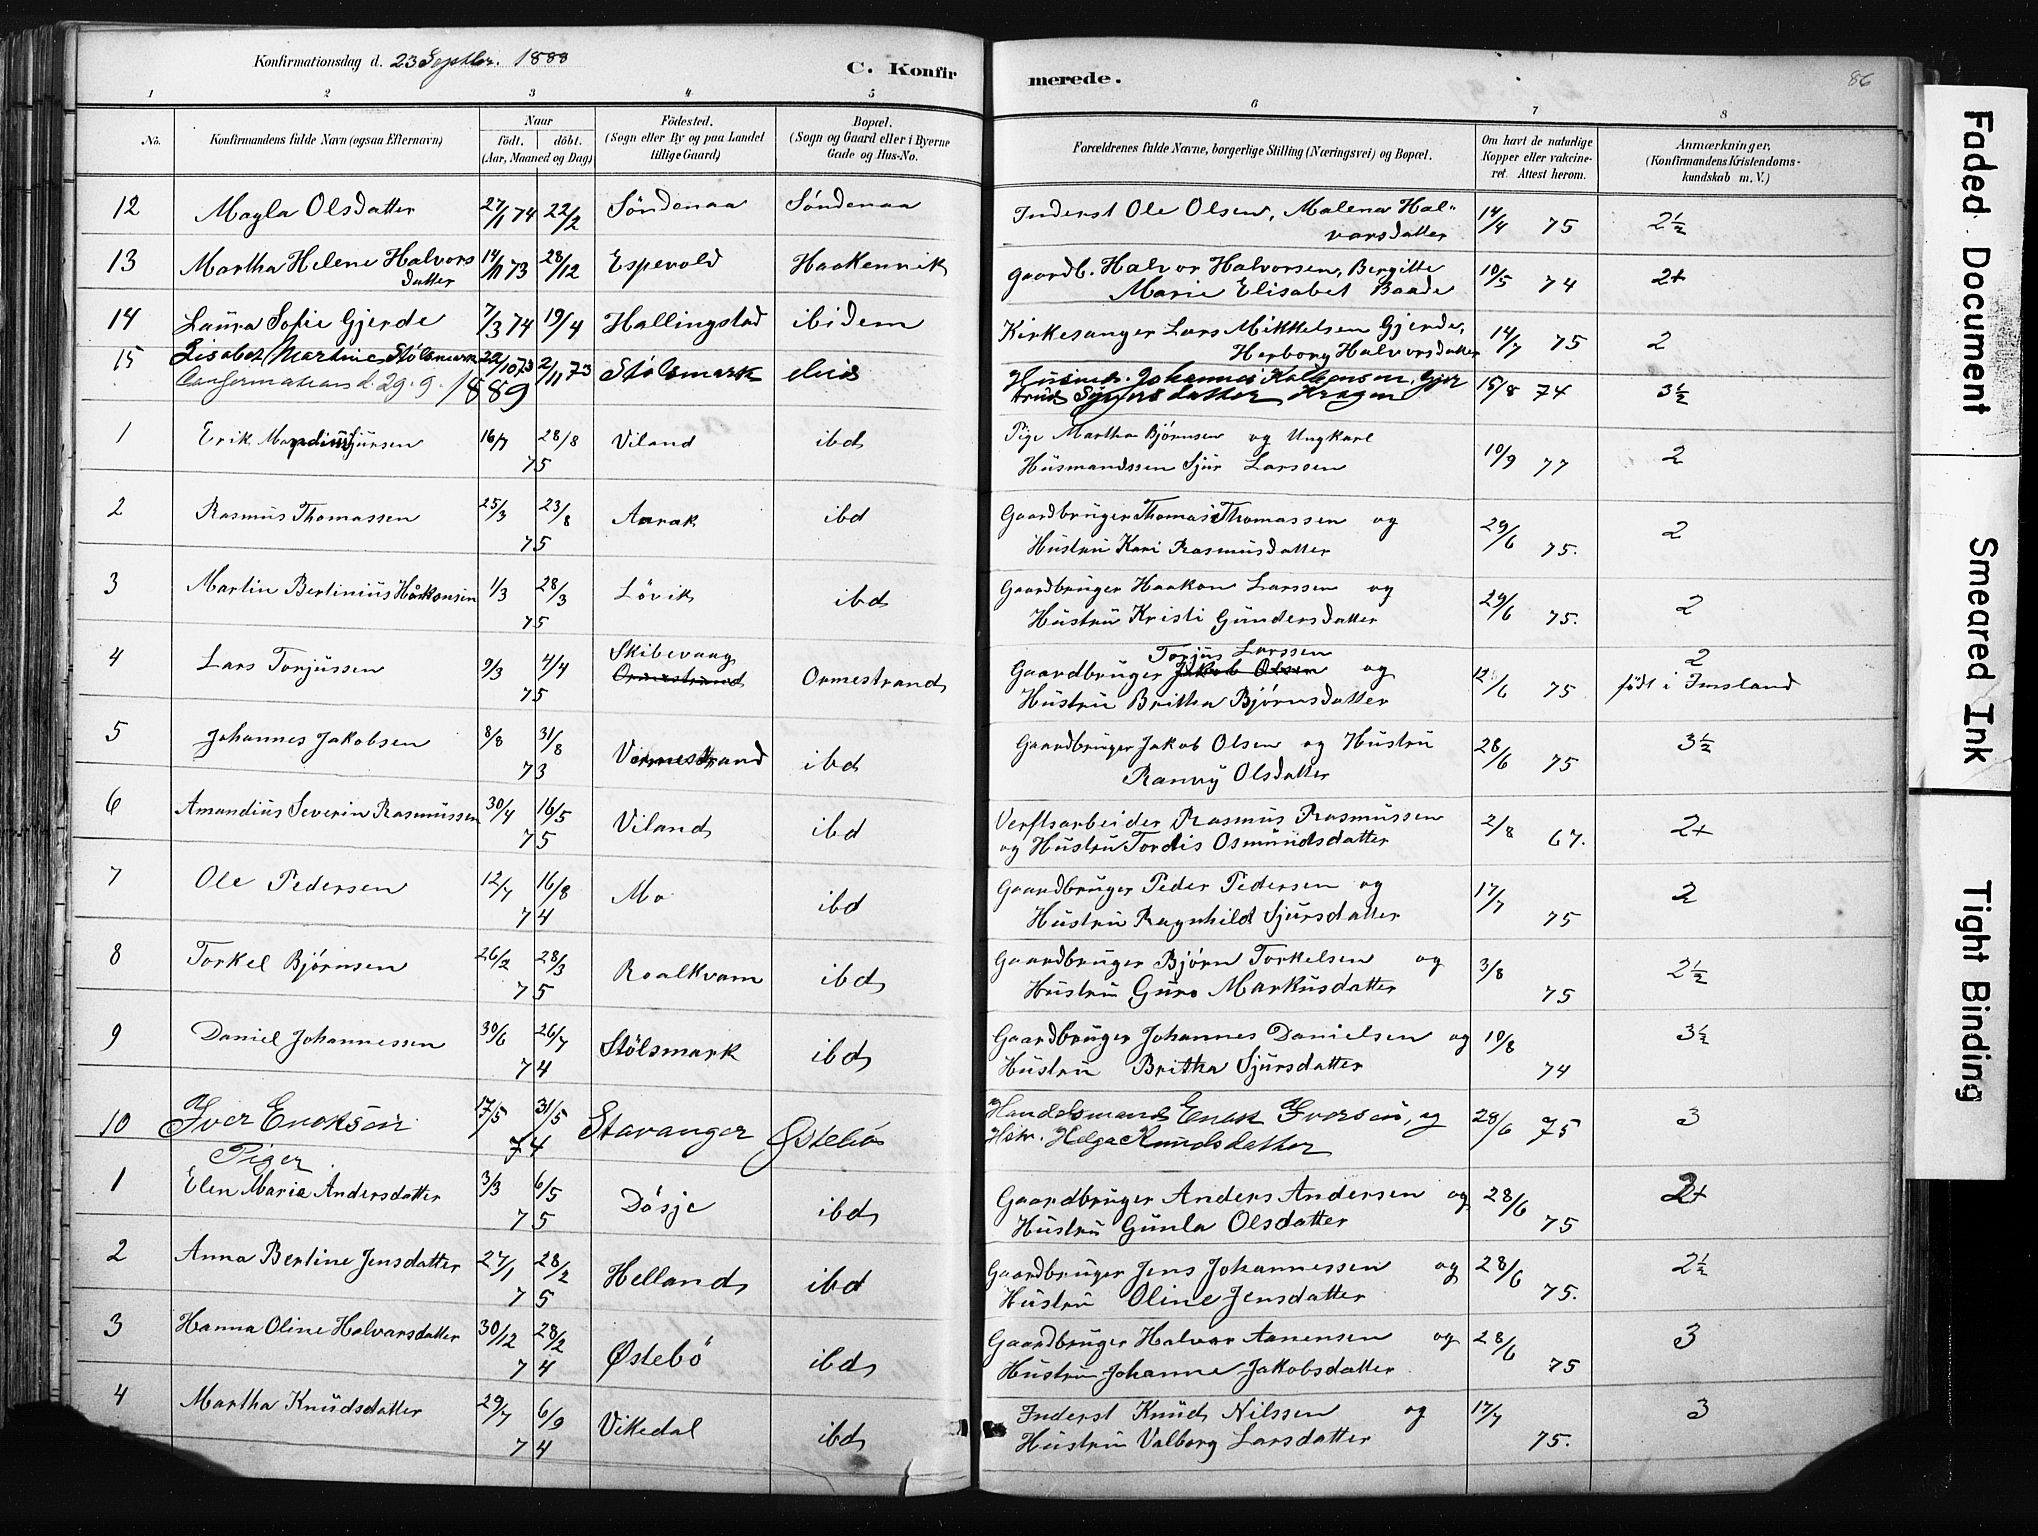 Konfirmationsdag d. 23 Septbr. 1888
C. Konfirmerede.
86
1 2 3 4 5 6 7 8
No.
Konfirmandens fulde Navn (ogsaa Efternavn)
Naar
født. døbt.
(Aar, Maaned og Dag)
Födested.
(Sogn eller By og paa Landet tillige Gaard)
Bopæl.
(Sogn og Gaard eller i Byerne Gade og Hus-No.
Forældrenes fulde Navne, borgerlige Stilling (Næringsvei) og Bopæl.
Om havt de naturlige Kopper eller vakcineret. Attest herom.
Anmærkninger,
(Konfirmandens Kristendomskundskab m. V.)
12 Magla Olsdatter 27/1 74 22/2 Söndenaa Söndenaa Inderst Ole Olsen, Malena Halvorsdatter 14/4 75 2½
13 Martha Helene Halvorsdatter 14/11 73 28/12 Espevold Haakenvik Gaardb. Halvor Halvorsen, Bergitte Marie Elisabet Baade 10/5 74 2+
14 Laura Sofie Gjerde 7/3 74 19/4 Hallingstad ibidem Kirkesanger Lars Mikkelsen Gjerde, Herborg Halvorsdatter 14/7 75 2
15 Lisabet Martine Stölsmark 22/10 73 2/11 73 Stölsmark Husmd. Johannes 15/8 74 3½
Confirmations d. 29. 9. 1889
1 Erik Sjursen 16/7 28/8 75 Viland ibd Pige Martha Bjørnsen og Ungkarl Husmandssen Sjur Larssen 10/9 77 2
2 Rasmus Thomassen 25/3 23/8 75 Aarak ibd Gaardbruger Thomas Thomassen og Hustru Kari Rasmusdatter 29/6 75. 2
3 Martin Bertinius Håkonsen 1/3 28/3 75 Lövik ibd Gaardbruger Haakon Larssen og Hustru Kristi Gundersdatter 29/6 75. 2
4 Lars Torjussen 9/3 4/4 75 Skibevaag Ormestrand Ormestrand Gaardbruger Torjus Larssen Jakob Olsen og Hustru Britha Bjørnsdatter 12/6 75 2 født i Imsland
5 Johannes Jakobsen 8/8 31/8 73 Vormestrand ibd Gaardbruger Jakob Olsen og Hustru Ranvÿ Olsdatter 28/6 75 3½
6 Amandius Severin Rasmussen 30/4 16/5 75 Viland ibd Verftsarbeider Rasmus Rasmussen og Hustru Tordis Osmundsdatter 2/8 67. 2+
7 Ole Pedersen 12/7 16/8 74 Mo ibd Gaardbruger Peder Pedersen og Hustru Ragnhild Sjursdatter 17/7 75 2
8 Torkel Bjørnsen 26/2 28/3 75 Roalkvam ibd Gaardbruger Bjørn Torkelsen og Hustru Guro Markusdatter 3/8 75 2½
9 Daniel Johannessen 30/6 26/7 74 Stölsmark ibd Gaardbruger Johannes Danielsen og Hustru Britha Sjursdatter 10/8 74 3½
10 Iver Enoksen 17/5 31/5 74 Stavanger Østebö Handelsmand Enok Iversen, og Hstr. Helga Knudsdatter 28/6 75 3
Piger
1 Elen Maria Andersdatter 3/3 6/5 75 Dösje ibd Gaardbruger Anders Andersen og Hustru Gunla Olsdatter 28/6 75 2+
2 Anna Bertine Jensdatter 27/1 28/2 75 Helland ibd Gaardbruger Jens Johannessen og Hustru Oline Jensdatter 28/6 75. 2½
3 Hanna Oline Halvarsdatter 30/12 28/2 74 Østebö ibd Gaardbruger Halvar Aanensen og Hustru Johanne Jakobsdatter 28/6 75 3
4 Martha Knudsdatter 29/7 6/9 74 Vikedal ibd Inderst Knud Nilssen og Hustru Valborg Larsdatter 17/7 75. 3
Faded Document
Smeared Ink
Tight Binding